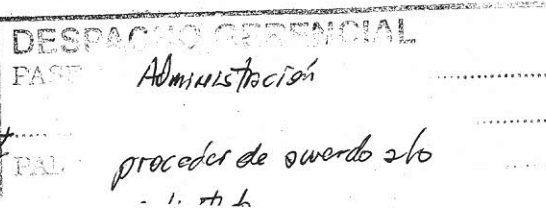 DESPACHO GERENCIAL
PASE Administración
PAL
proceder de acuerdo a lo